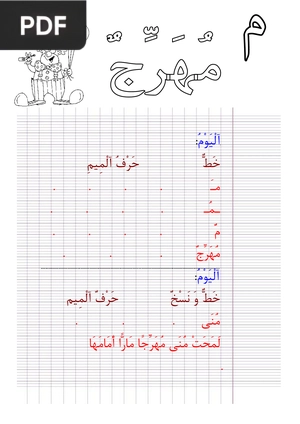 PDF
م
مُهَرِّجٌ
اَلْيَوْمُ:
خَطٌّ حَرْفُ الْمِيمِ
مـَ . . . .
ـمُـ . . . .
مٌ . . . .
مُهَرِّجٌ . . .
اَلْيَوْمُ:
خَطٌّ وَ نَسْخٌ حَرْفُ الْمِيمِ
مُنَى . . .
لَمَحَتْ مُنَى مُهَرِّجًا مَارًّا أَمَامَهَا
.